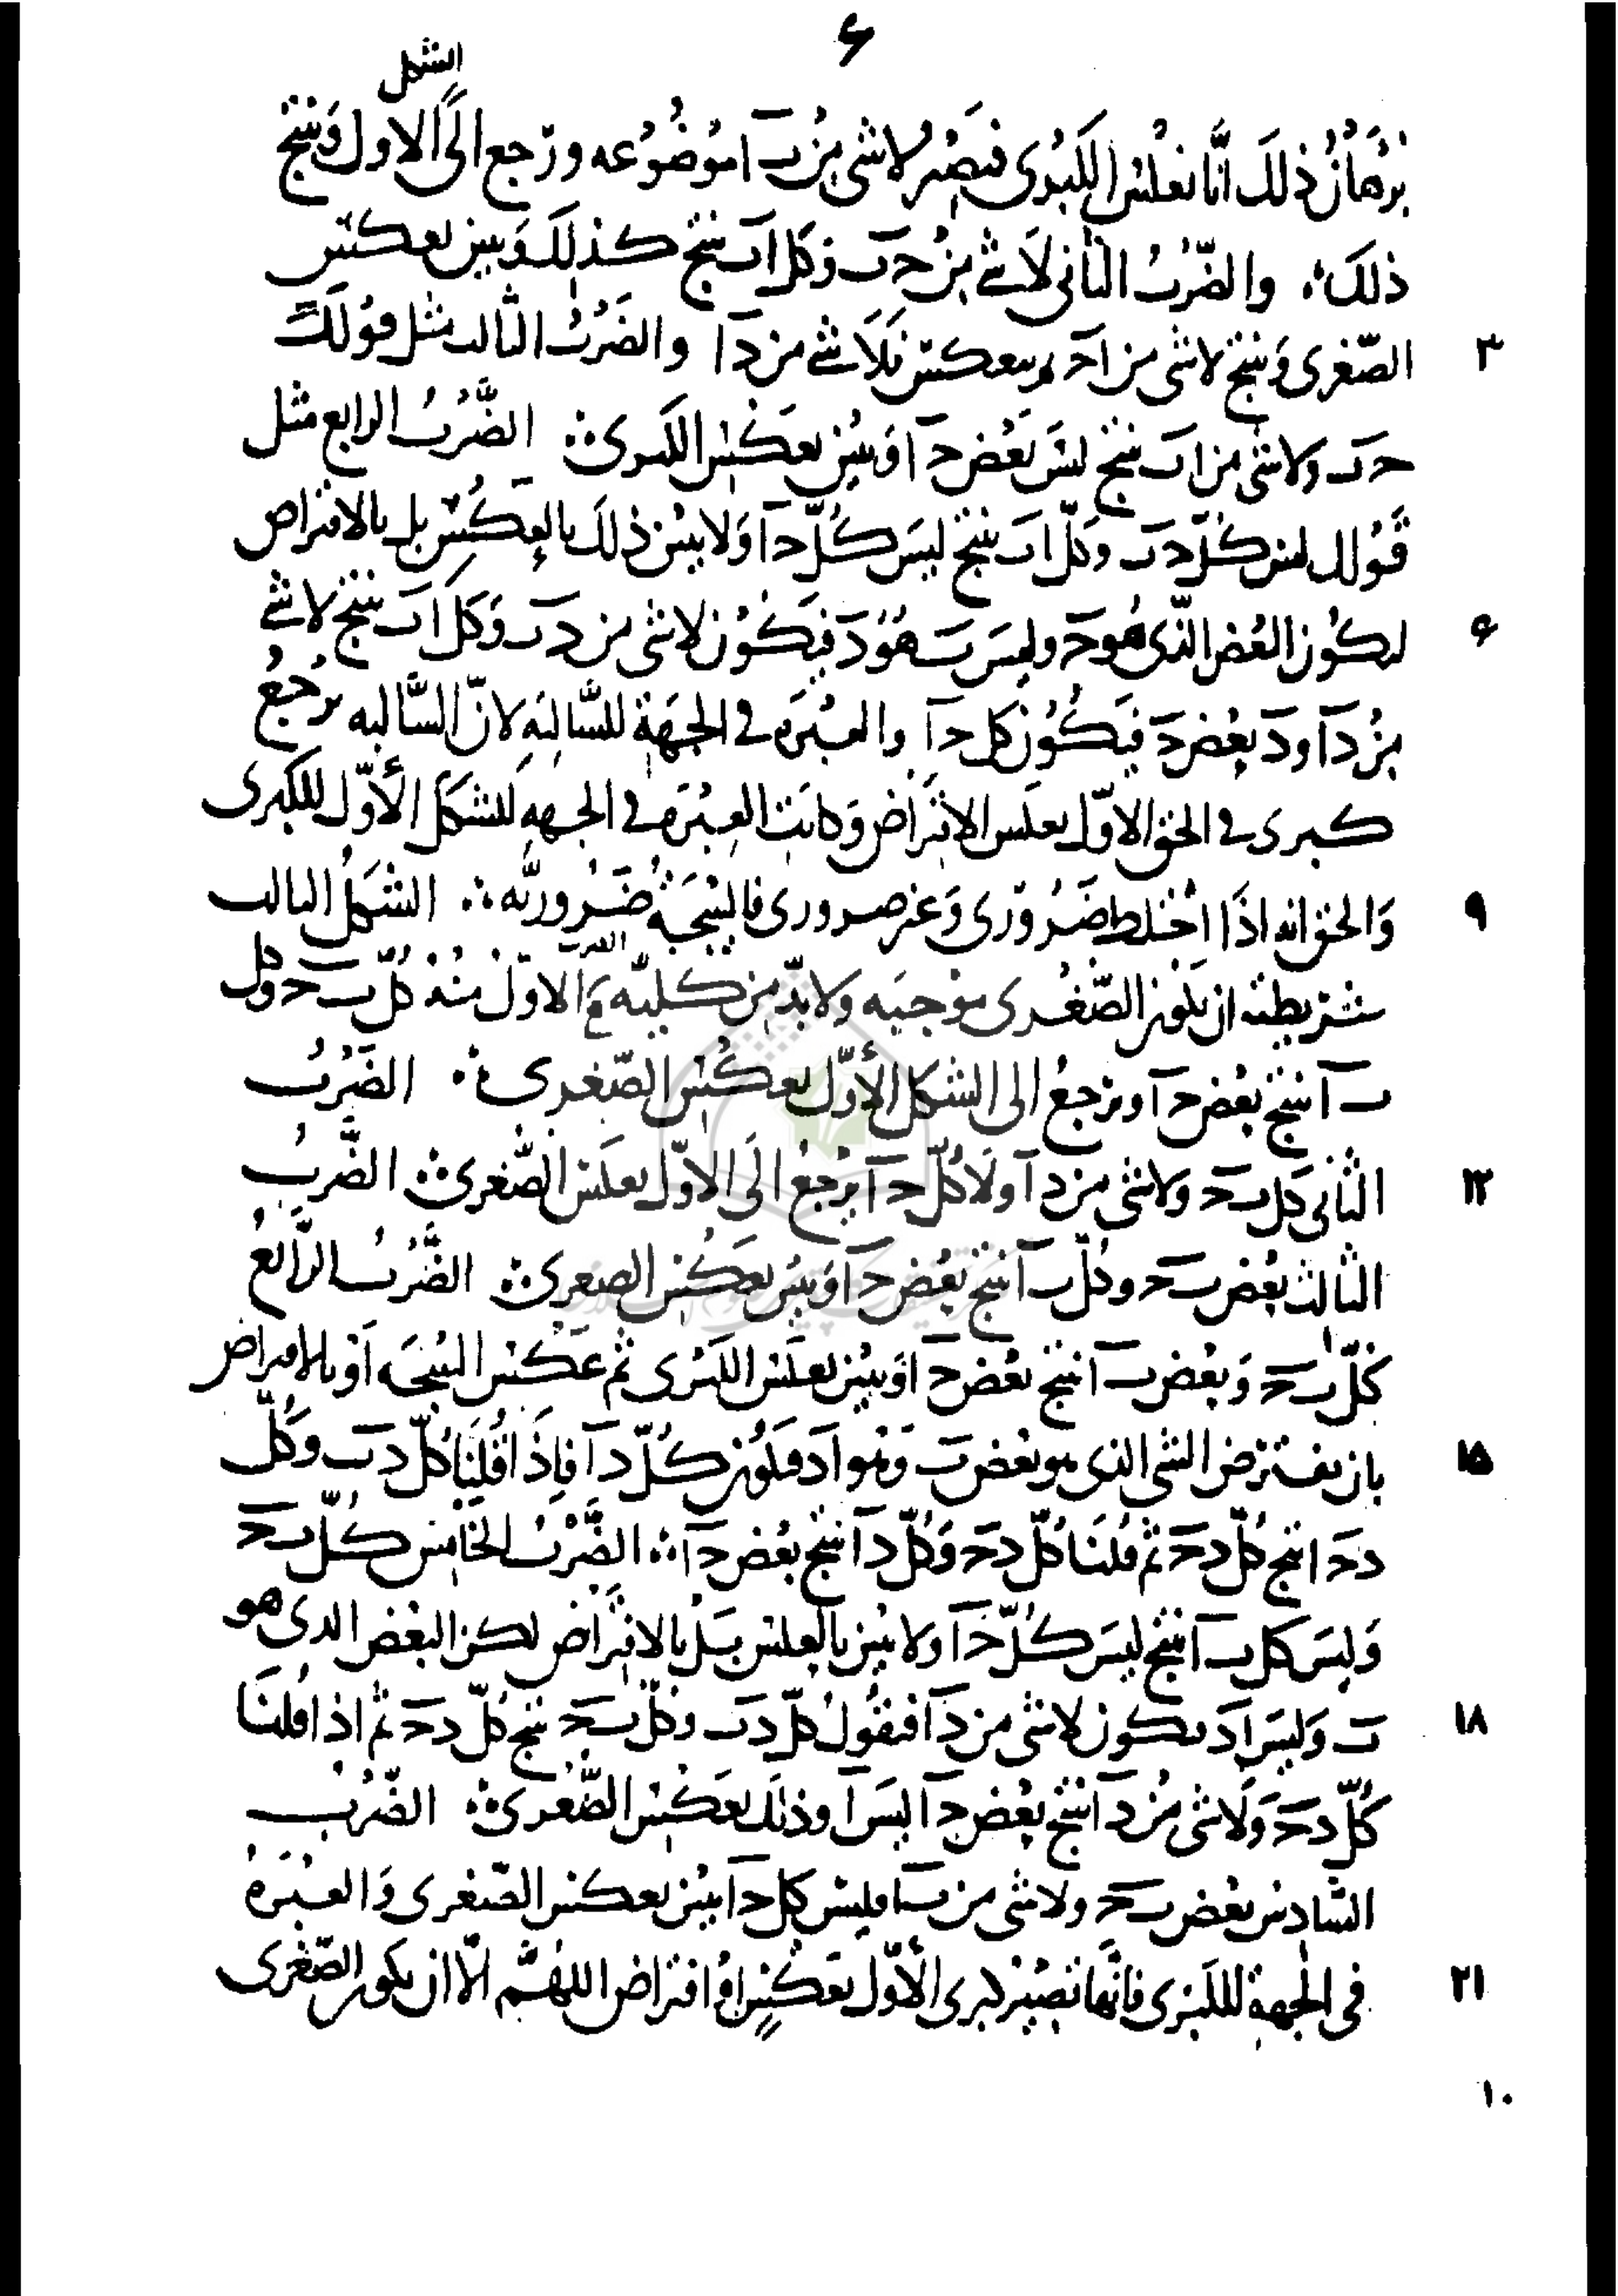 ۶
الشكل
برهان ذلك انّا نعكس الكبرى فيصير لا شى من ب ا موضوعه ورجع الى الاول وينتج
ذلك ؞ والضّرب الثانى لا شى من حـ ب وكل ا ب ينتج كذلك ويبين بعكس
۳ الصّغرى وينتج لا شى من ا حـ ثم ينعكس فلا شى من حـ ا والضرب الثالث مثل قولك
حـ ب ولا شى من ا ب ينتج ليس بعض حـ ا ويبين بعكس الكبرى ؞ الضّرب الرابع مثل
قولك ليس كلّ حـ ب وكلّ ا ب ينتج ليس كلّ حـ ا ولا يبين ذلك بالعكس بل بالافتراض
۶ ليكون البعض الذى هو حـ وليس ب هو د فيكون لا شى من د ب وكل ا ب ينتج لا شى
من د ا و د بعض حـ فيكون كل حـ ا والعبرة فى الجهة للسّالبة لانّ السّالبه يرجع
كبرى فى الحق الاوّل بعكس الافتراض وكانت العبرة فى الجهه للشكل الأوّل للكبرى
۹ والحق انه اذا اختلط ضرورى وغير ضرورى فالنتيجة ضروريّه ؞ الشكل الثالث
شريطته ان يكون الصّغرى موجبه ولا بدّ من كليّه الضرب الاوّل منه كلّ ب حـ وكل
ب ا ينتج بعض حـ ا ويرجع الى الشكل الأوّل بعكس الصّغرى ؞ الضرب
۱۲ الثّانى كل ب حـ ولا شى من د ا ولا كلّ حـ ا يرجع الى الاوّل بعكس الصّغرى ؞ الضّرب
الثالث بعض ب حـ وكلّ ب ا ينتج بعض حـ ا ويبين بعكس الصغرى ؞ الضّرب الرّابع
كلّ ب حـ وبعض ب ا ينتج بعض حـ ا ويبين بعكس الكبرى ثم عكس النتيجه او بالافتراض
۱۵ بان يفترض الشى الذى هو بعض ب وهو ا د فيكون كلّ د ا فاذا قلنا كلّ د ب وكلّ
د حـ انتج كلّ د حـ ثم قلنا كلّ د حـ وكلّ د ا ينتج بعض حـ ا ؞ الضّرب الخامس كلّ ب حـ
وليس كل ب ا ينتج ليس كلّ حـ ا ولا يبين بالعكس بل بالافتراض ليكن البعض الذى هو
۱۸ ب وليس ا د فيكون لا شى من د ا فنقول كلّ د ب وكلّ ب حـ ينتج كلّ د حـ ثم اذا قلنا
كلّ د حـ ولا شى من د ا ينتج بعض حـ ا ليس ا وذلك بعكس الصّغرى ؞ الضّرب
السّادس بعض ب حـ ولا شى من ب ا فليس كل حـ ا يبين بعكس الصّغرى والعبرة
۲۱ فى الجهة للكبرى فانّها تصير كبرى الأوّل بعكس او افتراض اللهُمّ الّا ان يكون الصّغرى
۱۰